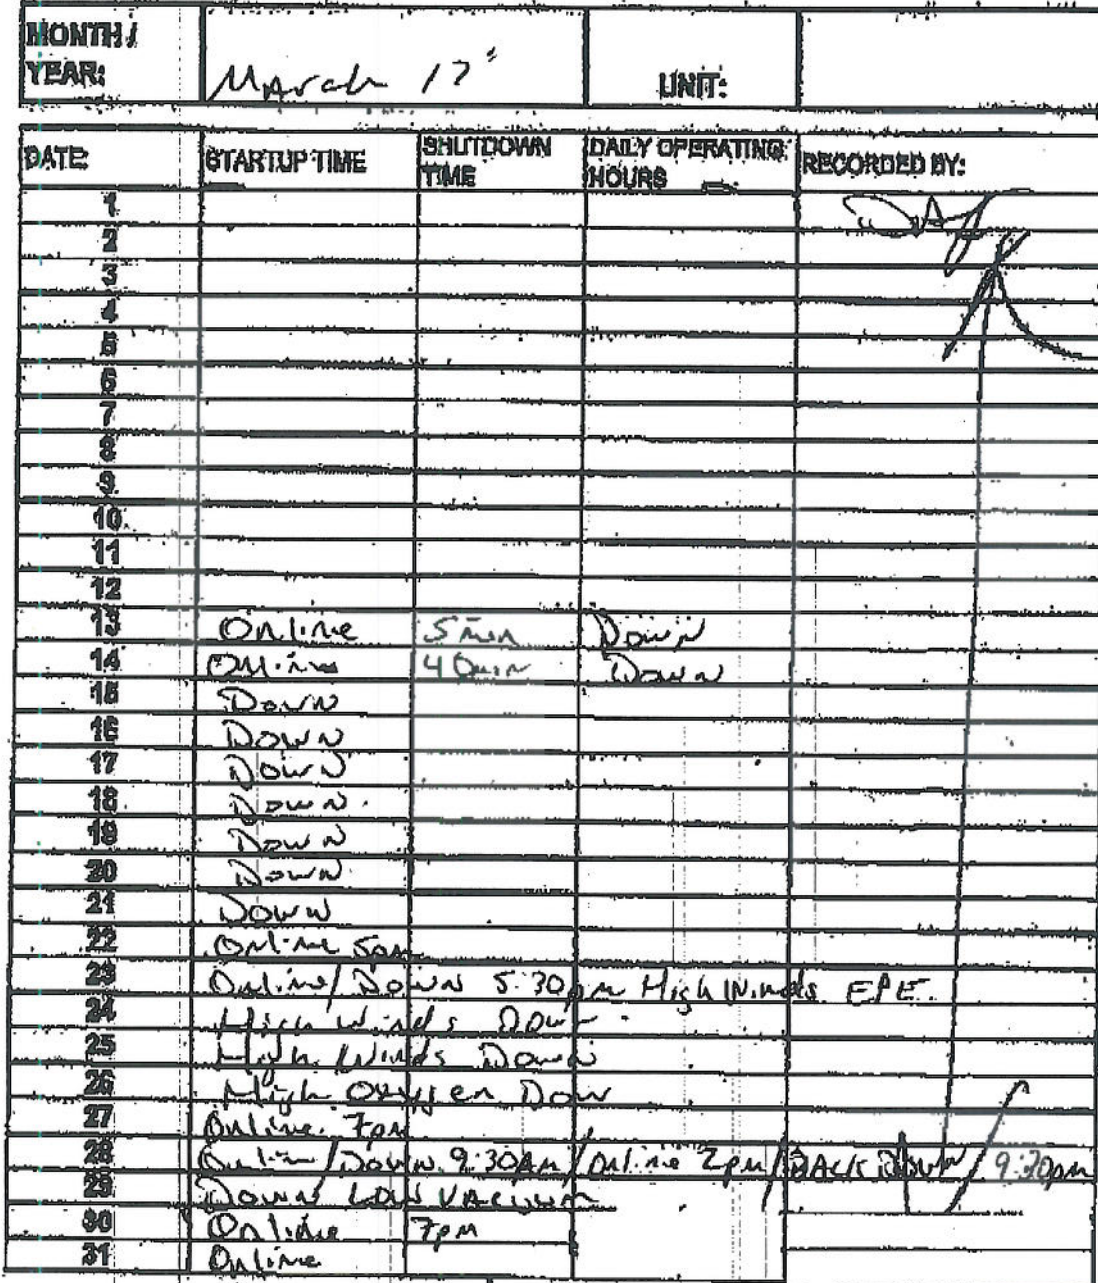 MONTH / YEAR: March 17 UNIT:
DATE STARTUP TIME SHUTDOWN TIME DAILY OPERATING HOURS RECORDED BY:
1
2
3
4
5
6
7
8
9
10
11
12
13 Online 5 min Down
14 Online 40 min Down
15 Down
16 Down
17 Down
18 Down
19 Down
20 Down
21 Down
22 Online 5pm
23 Online/Down 5:30pm High Winds EPE.
24 High Winds Down
25 High Winds Down
26 High Oxygen Down
27 Online 7pm
28 Online/Down 9:30Am/Online 2pm/BACK DOWN 9:30pm
29 Down Low Vacuum
30 Online 7pm
31 Online